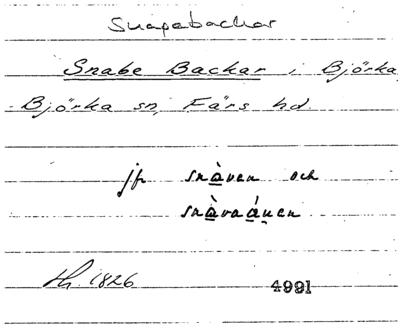 Snapabackar
Snabe Backar i Björka,
Björka sn, Färs hd.
jfr snàven och
snàvaánen
Lh. 1826
4991